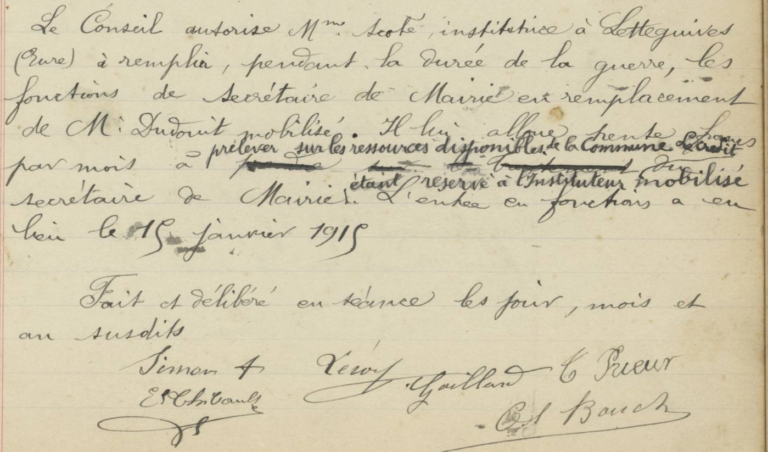 Le Conseil autorise Mme Acoté, institutrice à Letteguives
(Eure) à remplir, pendant la durée de la guerre, les
fonctions de secrétaire de Mairie en remplacement
de Mr mobilisé. Il lui alloue trente francs
prélever sur les ressources disponibles de la Commune Le Crédit
par mois à
étant reservé à l'Instituteur mobilisé
secrétaire de Mairie. L'entrée en fonctions a eu
lieu le 15 janvier 1915
Fait et délibéré en séance les jour, mois et
an susdits
Simon Leroy Gaillard C Prieur
E. Thibault